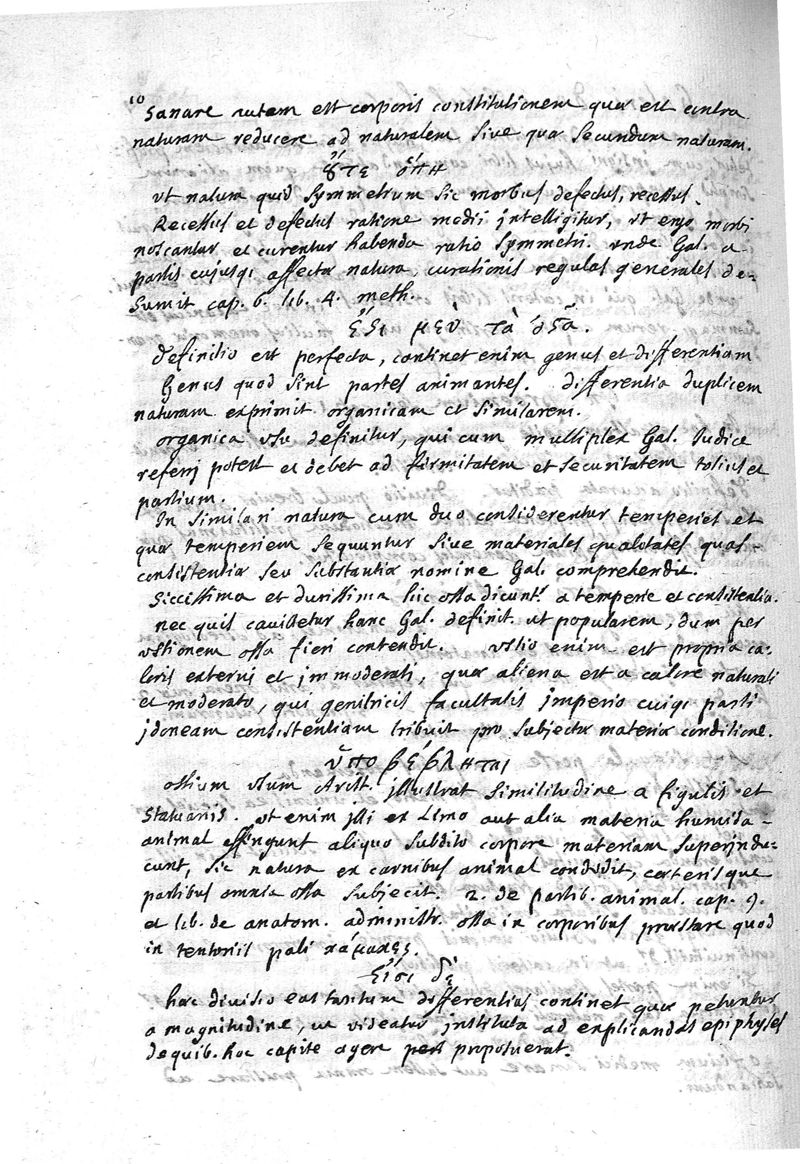 10
Sanare autem est corporis constitutionem quæ est contra
naturam reducere ad naturalem sive quæ secundum naturam.
ȣ̓́τε ὅπη
ut natura quid symmetrum sic morbus defectus, recessus.
Recessus et defectus ratione medii jntelligitur, ut ergo morbi
noscantur et curentur habenda ratio symmetri. unde Gal. a
partis cujusq; affectæ natura, curationis regulas generales de-
sumit cap. 6. lib. 4. meth.
ἔςι μὲν τὰ ὀςᾶ.
definitio est perfecta, continet enim genus et differentiam
Genus quod sint partes animantes. differentia duplicem
naturam exprimit organicam et similarem.
organica usu definitur, qui cum multiplex Gal. Judice
referrj potest et debet ad firmitatem et securitatem totius et
partium.
In similari natura cum duo considerentur temperies et
quæ temperiem sequuntur sive materiales qualitates quas
consistentiæ seu substantiæ nomine Gal. comprehendit.
Siccissima et durissima hic ossa dicunt.r a temperie et consistentia.
nec quis cavilletur hanc Gal. definit. ut popularem, dum per
ustionem ossa fieri contendit. ustio enim est propria ca-
loris externj et jmmoderati, quæ aliena est a calore naturali
et moderato, qui genitricis facultatis jmperio cuiq; parti
jdoneam consistentiam tribuit pro subjectæ materiæ conditione.
ὑποβέβληται
ossium usum Arist. jllustrat similitudine a figulis et
statuariis. ut enim jlli ex Limo aut alia materia humida
animal effingunt aliquo subdito corpore materiam superjndu-
cunt, sic natura ex carnibus animal condidit, cæterisque
partibus omnia ossa subjecit. 2. de partib. animal. cap. 9.
et lib. de anatom. administr. ossa in corporibus præstare quod
in tentoriis pali χάμακες.
εἰσὶ δὲ
hæc divisio eas tantum differentias continet quæ petuntur
a magnitudine, ut videatur jnstituta ad explicandas epiphyses
de quib. hoc capite agere proposuerat.